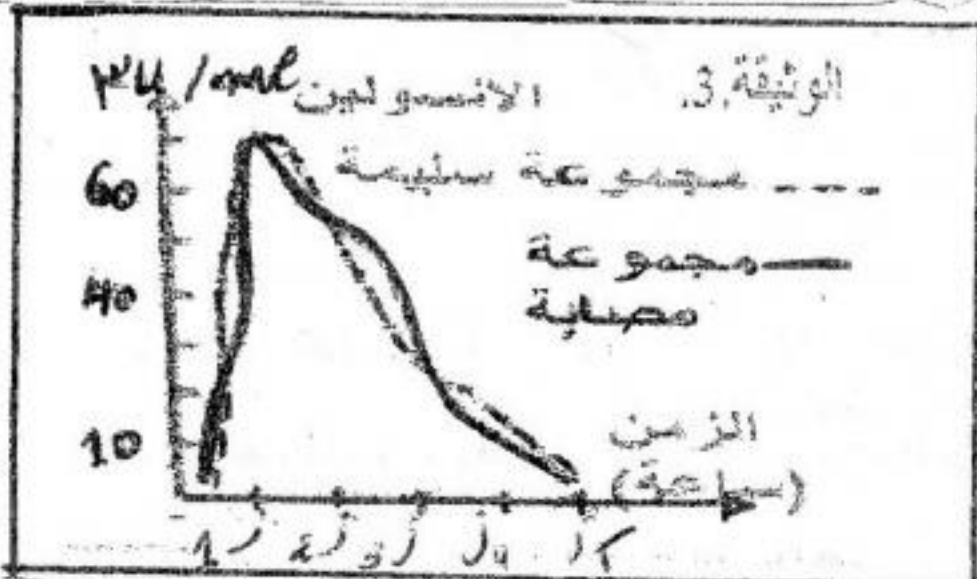 الوثيقة.3.
الانسولين
/ml
60
40
10
مجموعة سليمة
مجموعة
مصابة
الزمن
(ساعة)